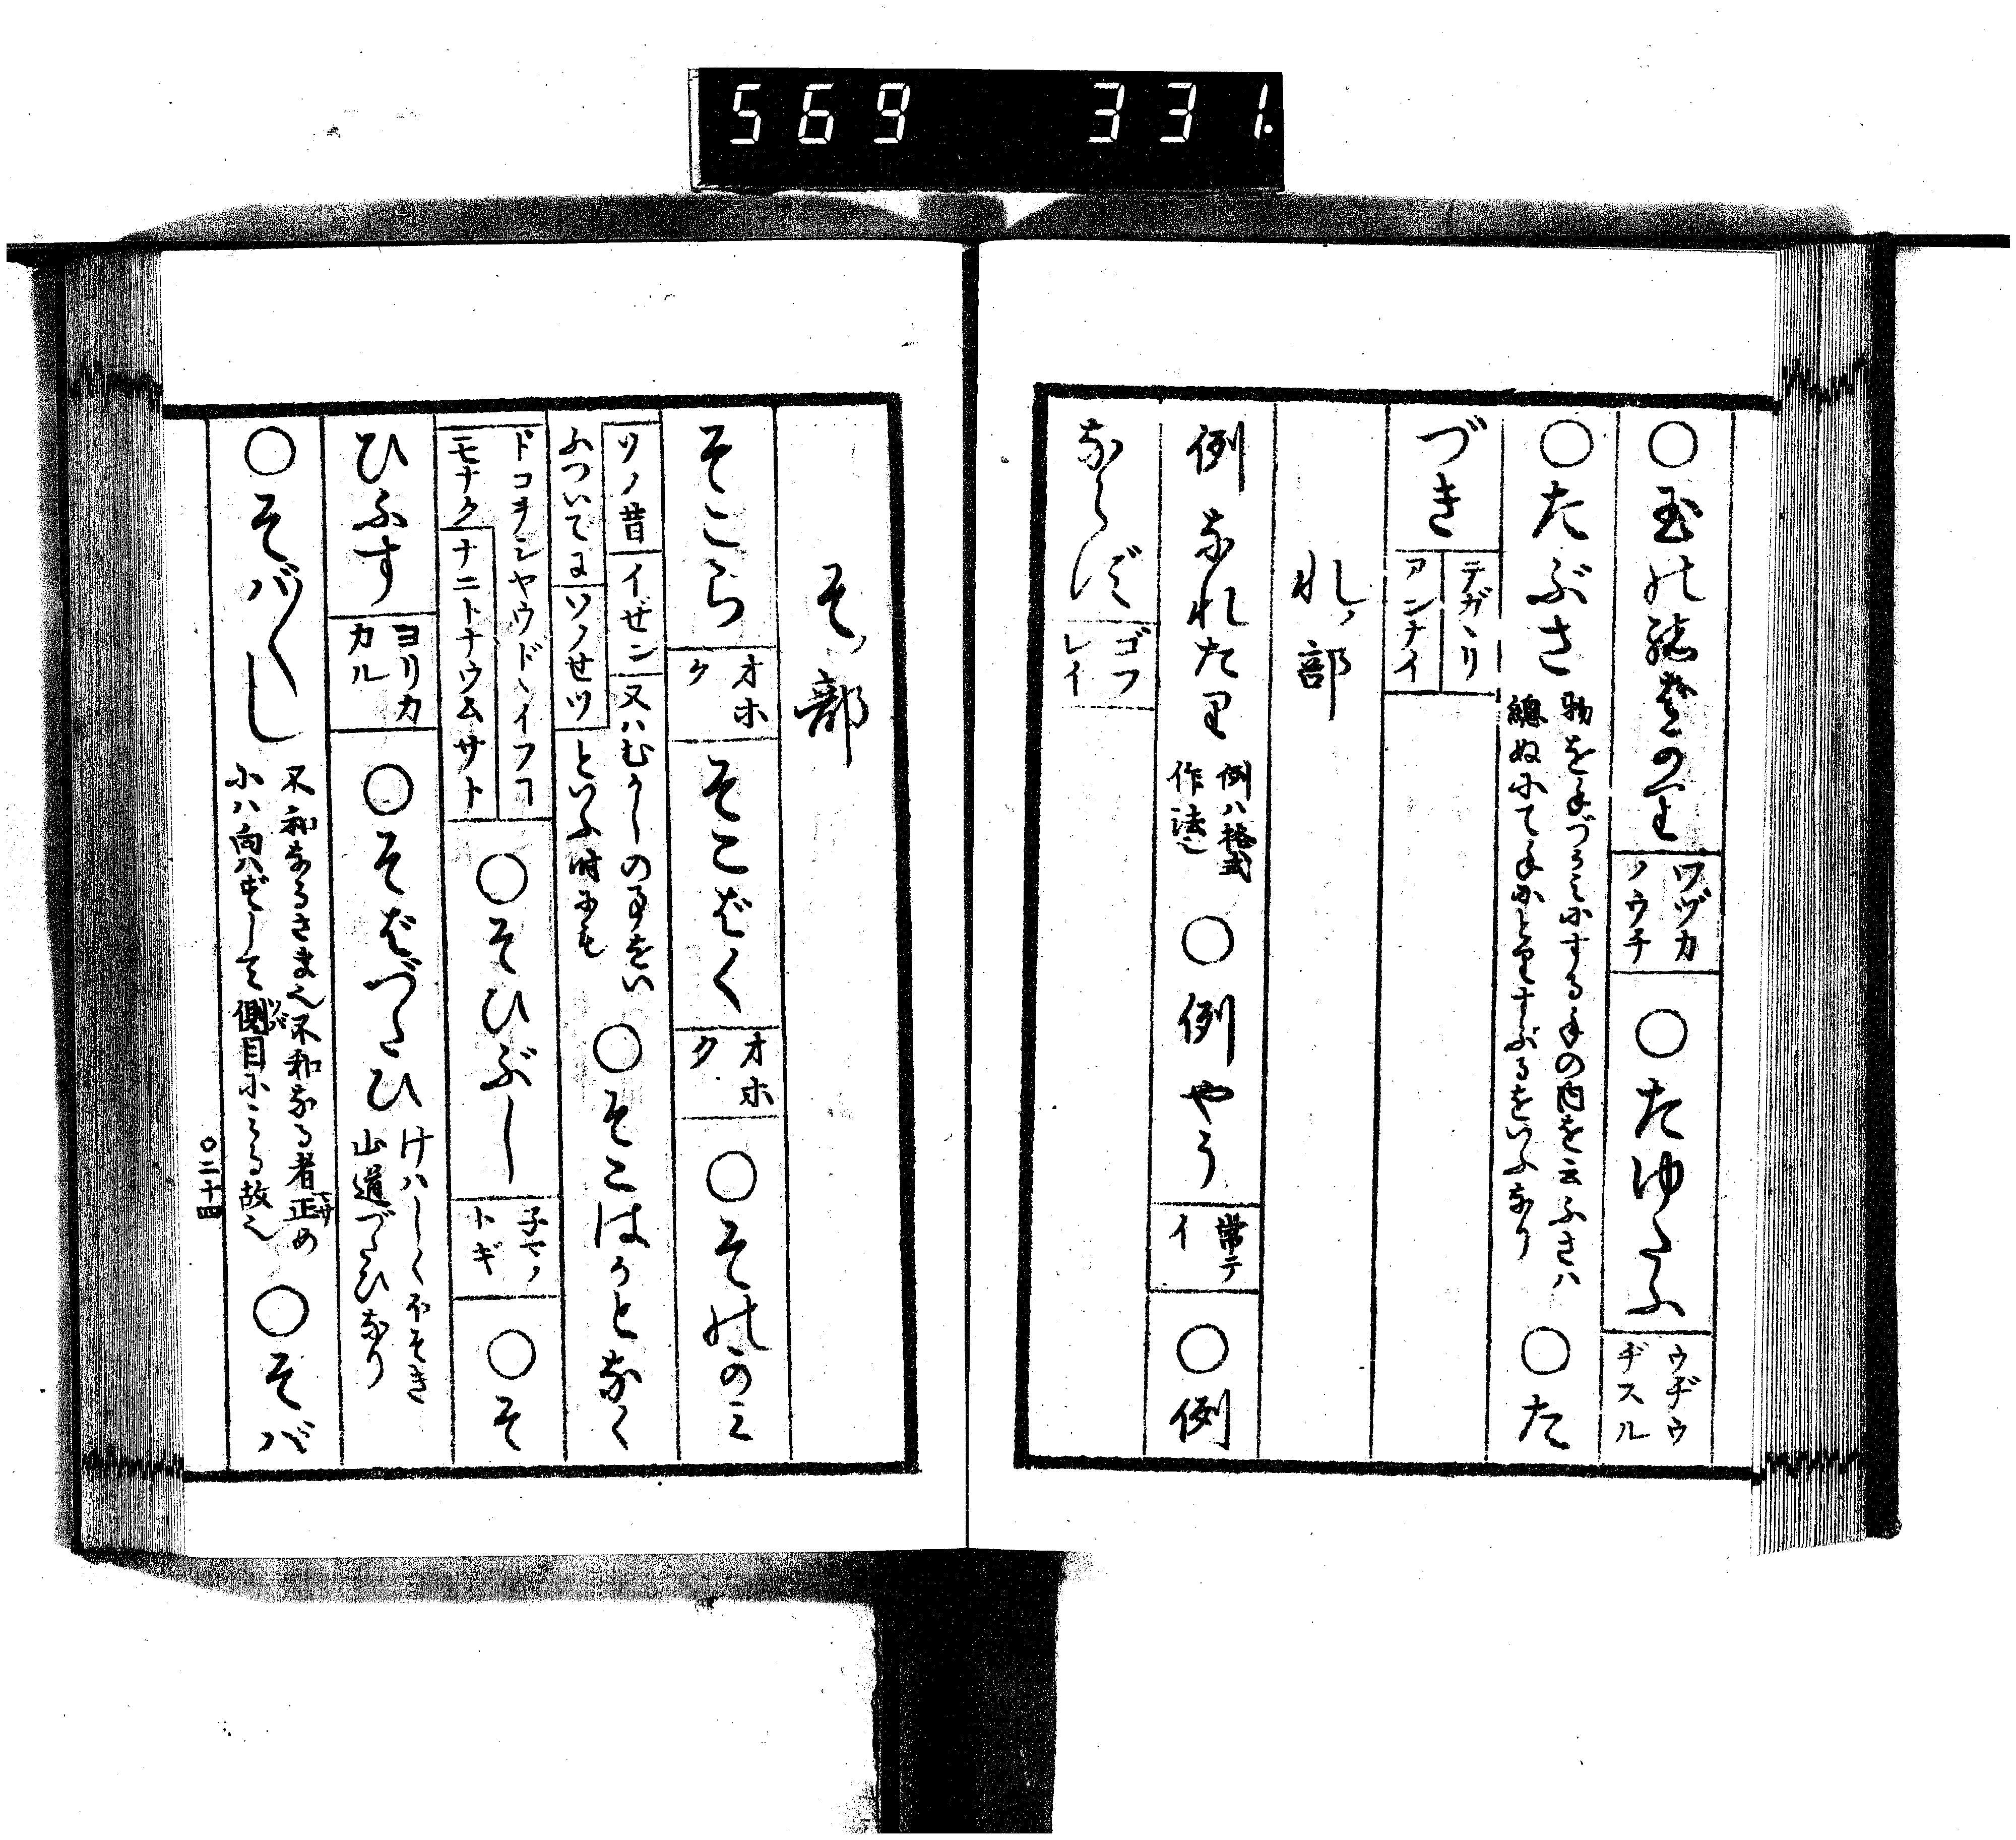 569 331.
○玉の緒ばかり ワヅカノウチ ○たゆたふ ウヂウヂスル
○たぶさ 物を手づかみにする手の内を云ふさハ
總ぬにて手に すぶるをいふなり ○た
づき テガヽリ アンナイ
れノ部
例なれたり 例ハ格式
作法也 ○例やう 常テイ ○例
ならず ゴフレイ
そノ部
そこら オホク そこばく オホク ○そのかみ
ソノ昔 イぜン 又ハむかしの事をい
ふついでに ソノせツ といふ時にも ○そこはかと なく
ドコヲシヤウドヽイフヿ
モナク ナニトナウムサト ○そひぶし 子マノトギ ○そ
ひふす ヨリカカル ○そばづたひ けハしくほそき
山道づたひなり
○そば〱し 不和なるさま也不和なる者正め
にハ向ハずして側目にみる故也 ○そバ
○二十四